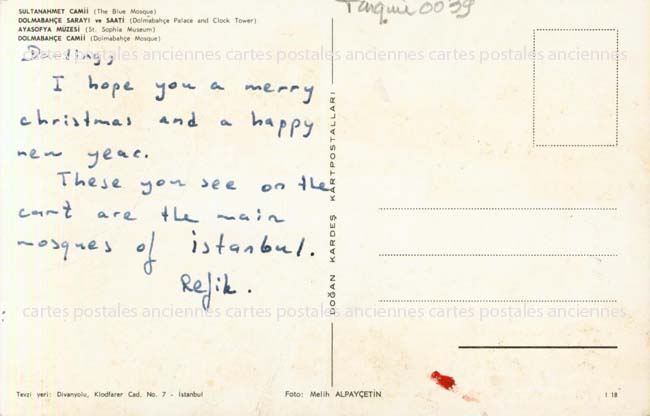 SULTANAHMET CAMİİ (The Blue Mosque)
DOLMABAHÇE SARAYI ve SAATİ (Dolmabahçe Palace and Clock Tower)
AYASOFYA MÜZESİ (St. Sophia Museum)
DOLMABAHÇE CAMİİ (Dolmabahçe Mosque)
Turquie 0039
Darling,
cartes postales anciennes cartes postales anciennes cartes postales anciennes
I hope you a merry
christmas and a happy
new year.
These you see on the
cart are the main
mosques of istanbul.
Refik.
cartes postales anciennes cartes postales anciennes cartes postales anciennes
DOĞAN KARDEŞ KARTPOSTALLARI
Tevzi yeri: Divanyolu, Klodfarer Cad. No. 7 - İstanbul
Foto: Melih ALPAYÇETİN
I 18